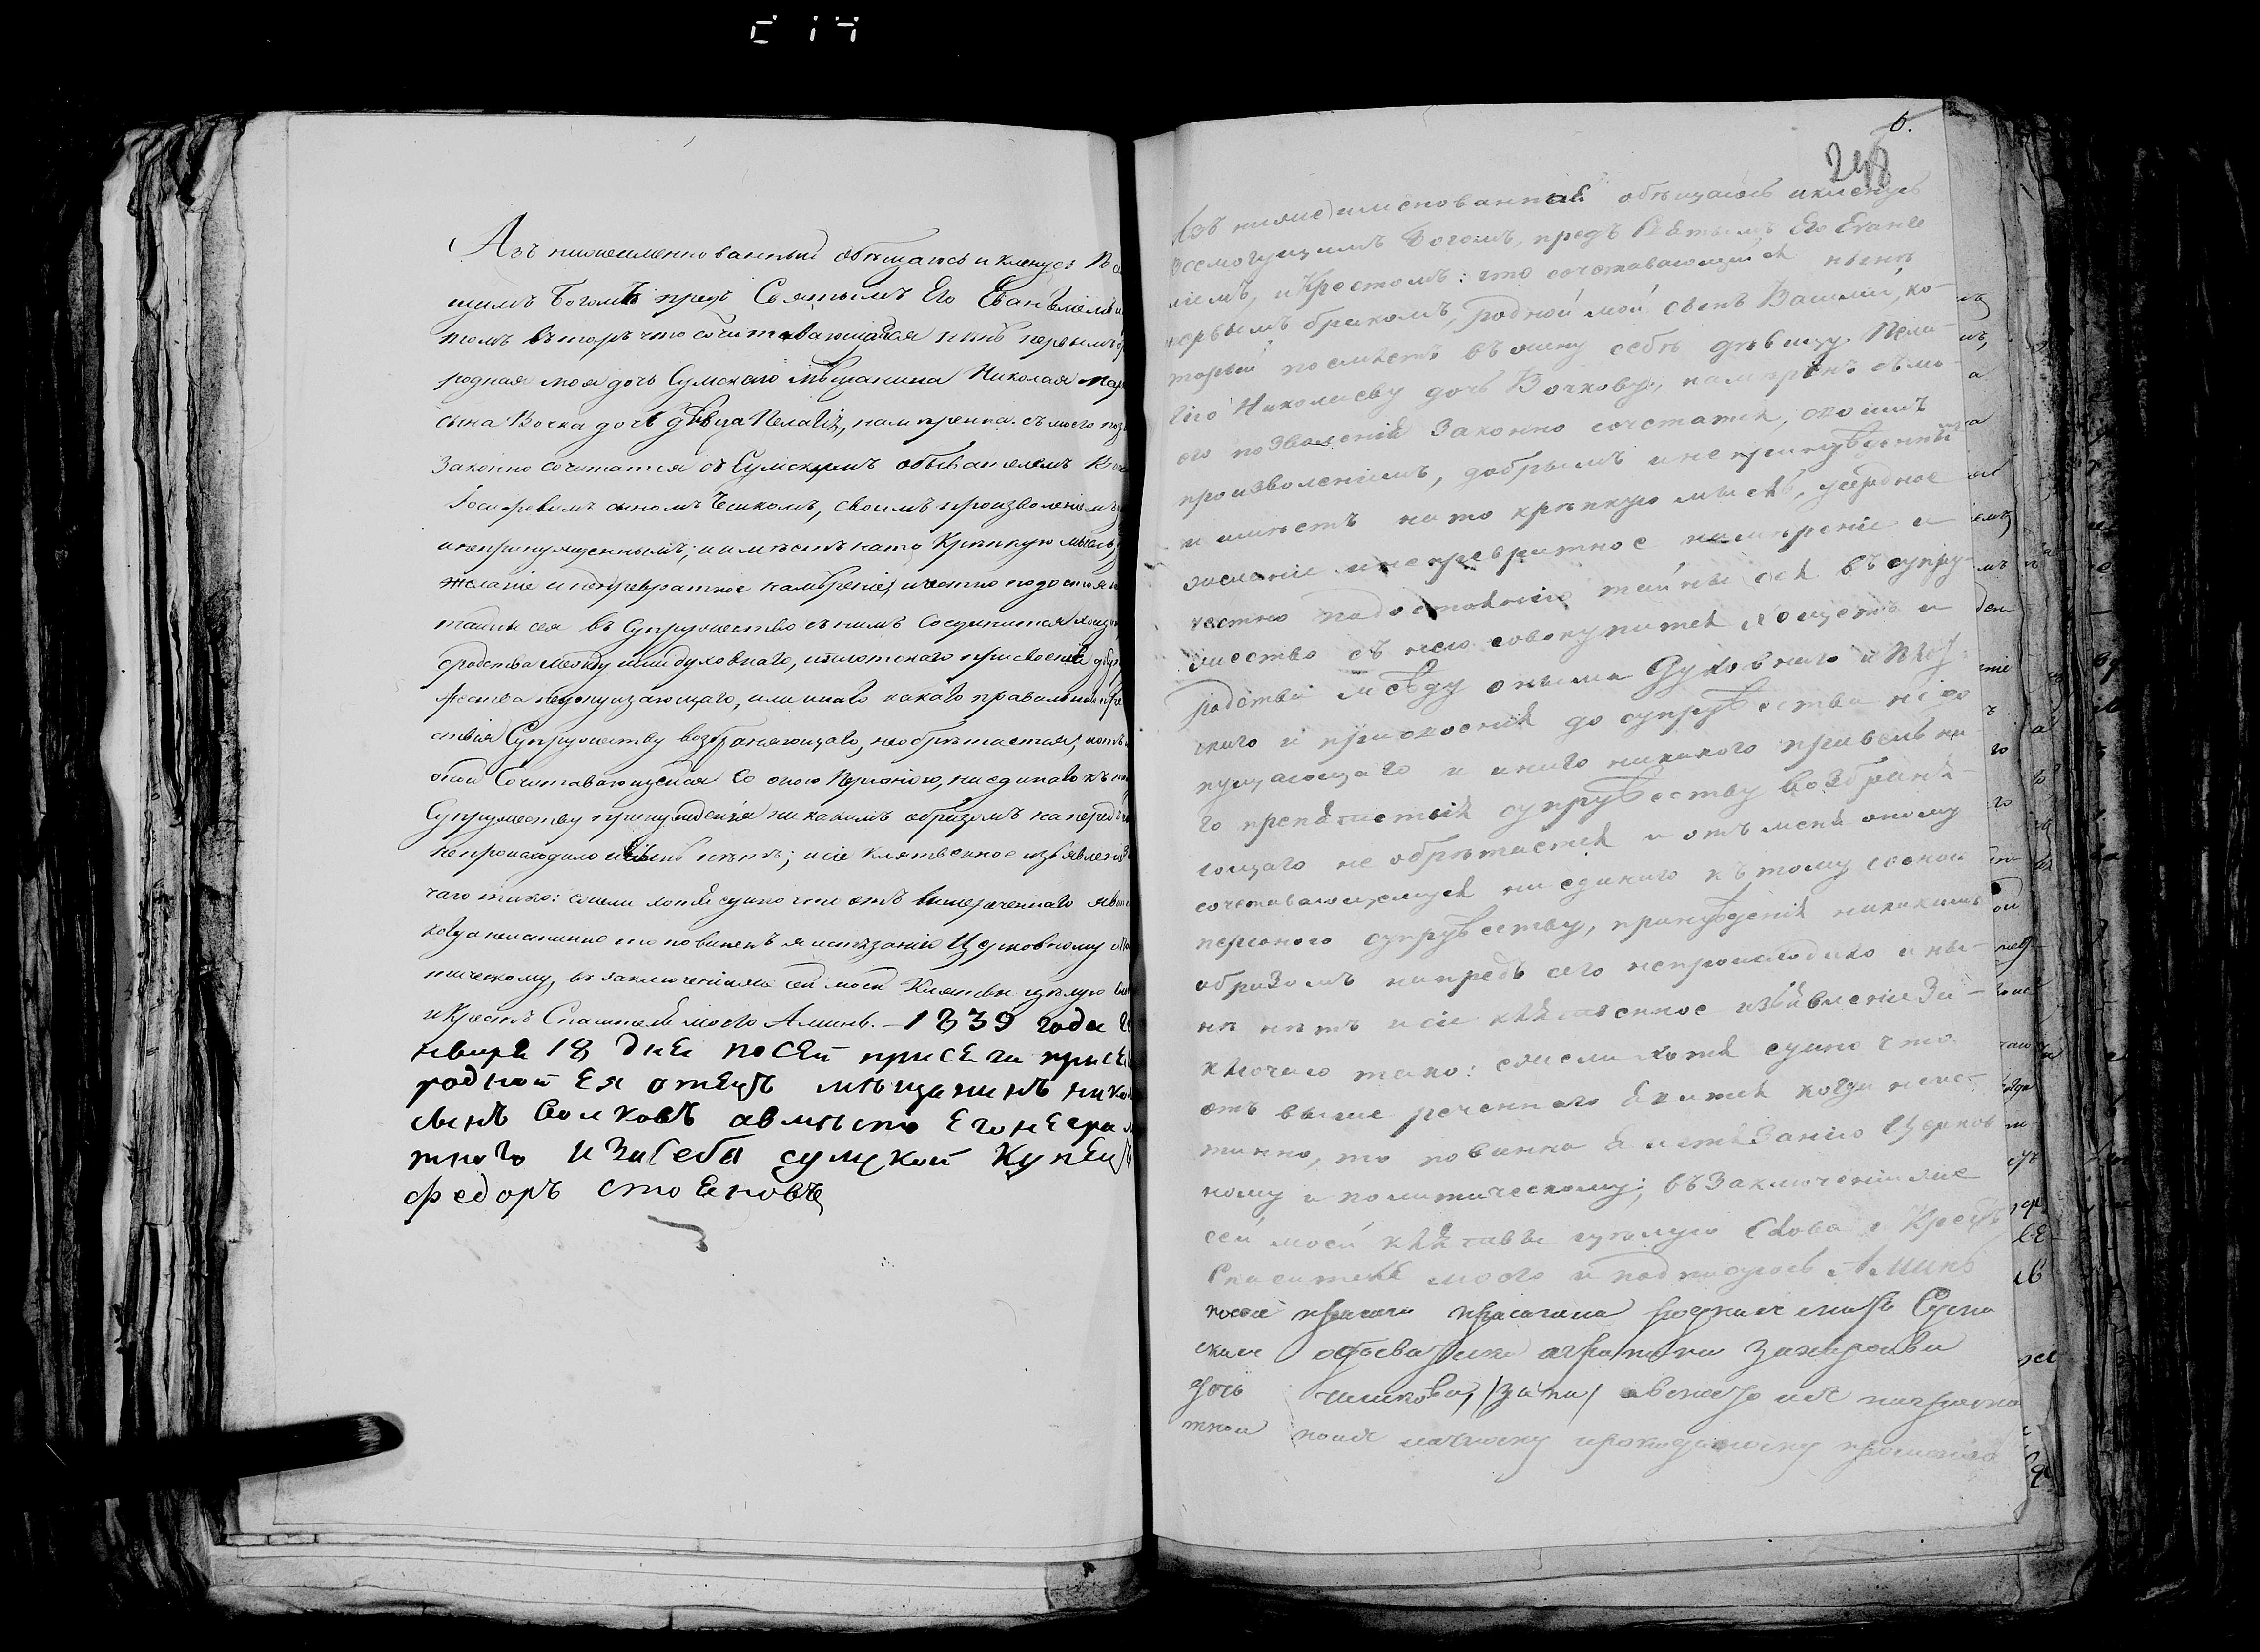 Азъ нижеименнованный обѣщаюсь и кленусь
щимъ Богомъ предъ Святымъ Его Евангелiемъ
томъ въ томъ что сочитавающаяся нынѣ первымъ
родная моя дочь Сумскаго мѣщанина Николая
сына Вочка дочь дѣвица Пелагiя, намѣренна съ моего
Законно сочетатся съ Сумскимъ обывателемъ
сыномъ своимъ произволенiемъ
и непринужденнымъ; и имѣетъ на то Крѣпкую мысль
желанiе и непревратное намѣренiе, и честно по достоянiю
тайны сея въ Супружество съ нимъ Соединится
сродства между ими духовнаго, и плотскаго присвоенiя
жества недопущающаго, или инаго какаго правильнаго
ствiя Супружеству возбраняющаго, не обрѣтается,
оной Сочитавающейся Со оною Персоною, ни единаго къ
Супружеству принужденiя никакимъ образомъ напредь
не происходило и нынѣ нѣтъ; и сiе клятвенное изъявленiе
чаю тако: если хотя едино что отъ вышереченнаго
когда неистинно то повиненъ я истязанiю Церковному
тическому, въ заключенiи же сей моей Клятвы цѣлую
и Крестъ Спасителя моего Аминь. – 1839 года Ге
нваря 18 дня по сей присеги присе
родной Ея отецъ мѣщанинъ нико
сынъ Волковъ а вмѣсто Его неграм
тнаго и за Себя сумской Купецъ
федоръ стоеновъ
6.
248
Азъ нижеимменованная обѣщаюсь и кленусь
всемогущимъ Богомъ, предъ Святымъ Его Еванге
лiемъ, и Крестомъ: что сочетавающийся нынѣ
первымъ бракомъ, родной мой сынъ Василiй, ко-
торый поемлетъ въ жену себѣ дѣвицу Пела-
гiю Николаеву дочь Вочкову, намѣренъ съ мо-
его позволенiя Законно сочетатся, своимъ
произволенiемъ, добрымъ и непринужденны
и имѣетъ на то крѣпкую мысль, усердное
желанiе и непревратное намѣренiе и
честно по достоянiю тайны сея въ супру-
жество съ нею совокупится хощетъ и
сродства между оными Духовнаго и Плот-
скаго и присвоенiя до супружества не до
пущающаго и инаго никакого правельна-
го препятствiя супружеству возбраня-
ющаго не обрѣтается и отъ меня оному
сочетавающемуся ни единаго къ тому со оною
персоною супружеству, принужденiя никакимъ
образомъ напредь сего непроисходило и ны-
нѣ нѣтъ и сiе клятвенное изъявленiе За-
ключаю тако: если хотя едино что
отъ выше реченнаго явится когда неис-
тинно, то повинна я истязанiю Церков
ному и политическому; въ Заключенiи же
сей моей клятвы цѣлую Слова и Крестъ
Спасителя моего и подписуюсь Аминь
посей присяги присягала родная мать Сумс
кая обывателка Захарова
дочь а вместо ея неграмо
тной по ея личному прошенiю